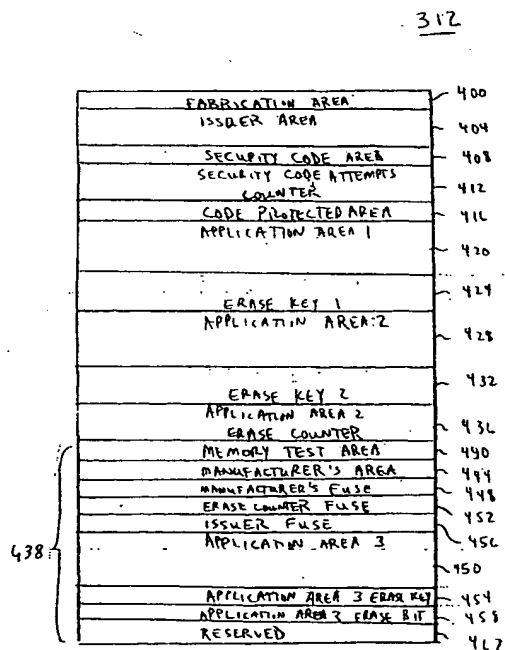 312
FABRICATION AREA 400
ISSUER AREA 404
SECURITY CODE AREA 408
SECURITY CODE ATTEMPTS
COUNTER 412
CODE PROTECTED AREA 416
APPLICATION AREA 1 420
424
ERASE KEY 1
APPLICATION AREA 2 428
432
ERASE KEY 2
APPLICATION AREA 2
ERASE COUNTER 436
MEMORY TEST AREA 440
MANUFACTURER'S AREA 444
MANUFACTURER'S FUSE 448
ERASE COUNTER FUSE 452
ISSUER FUSE 456
APPLICATION AREA 3
438
450
APPLICATION AREA 3 ERASE KEY 454
APPLICATION AREA 3 ERASE BIT 458
RESERVED 462